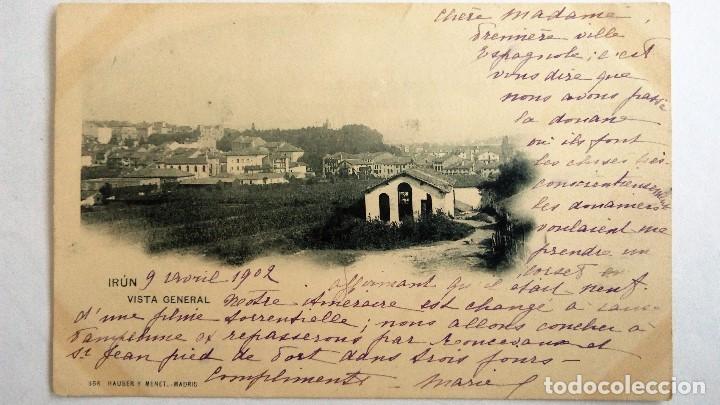 Chère Madame,
Première ville
Espagnole; c'est
vous dire que
nous avons passé
la douane
où ils font
les choses très
consciencieusement
les douaniers
voulaient me
prendre un
corset
affirmant qu'il était neuf.
IRÚN 9 Avril 1902
VISTA GENERAL
Notre itinéraire est changé à cause
d'une pluie torrentielle; nous allons coucher à
Pampelune et repasserons par Roncevaux et
St Jean pied de Port dans trois jours -
Compliments - Marie
HAUSER Y MENET.-MADRID
todocoleccion.net